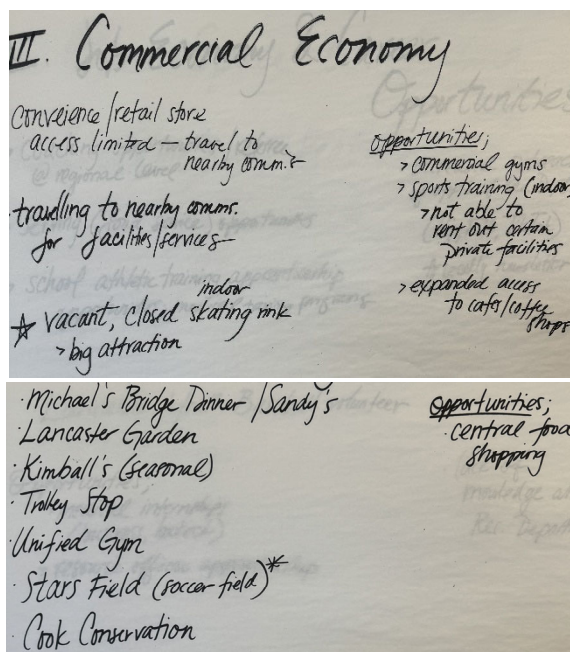 III. Commercial Economy
Conveience/retail store
access limited — travel to
nearby comm.s
· travelling to nearby comms.
for facilities/services
☆ vacant, closed indoor skating rink
> big attraction
opportunities;
> commercial gyms
> sports training (indoor
> not able to
rent out certain
private facilities
> expanded access
to cafes/coffee
shops
· Michael's Bridge Dinner/Sandy's
· Lancaster Garden
· Kimball's (seasonal)
· Trolley Stop
· Unified Gym
· Stars Field (soccer field)*
· Cook Conservation
opportunities;
· central food
shopping
Opportunities